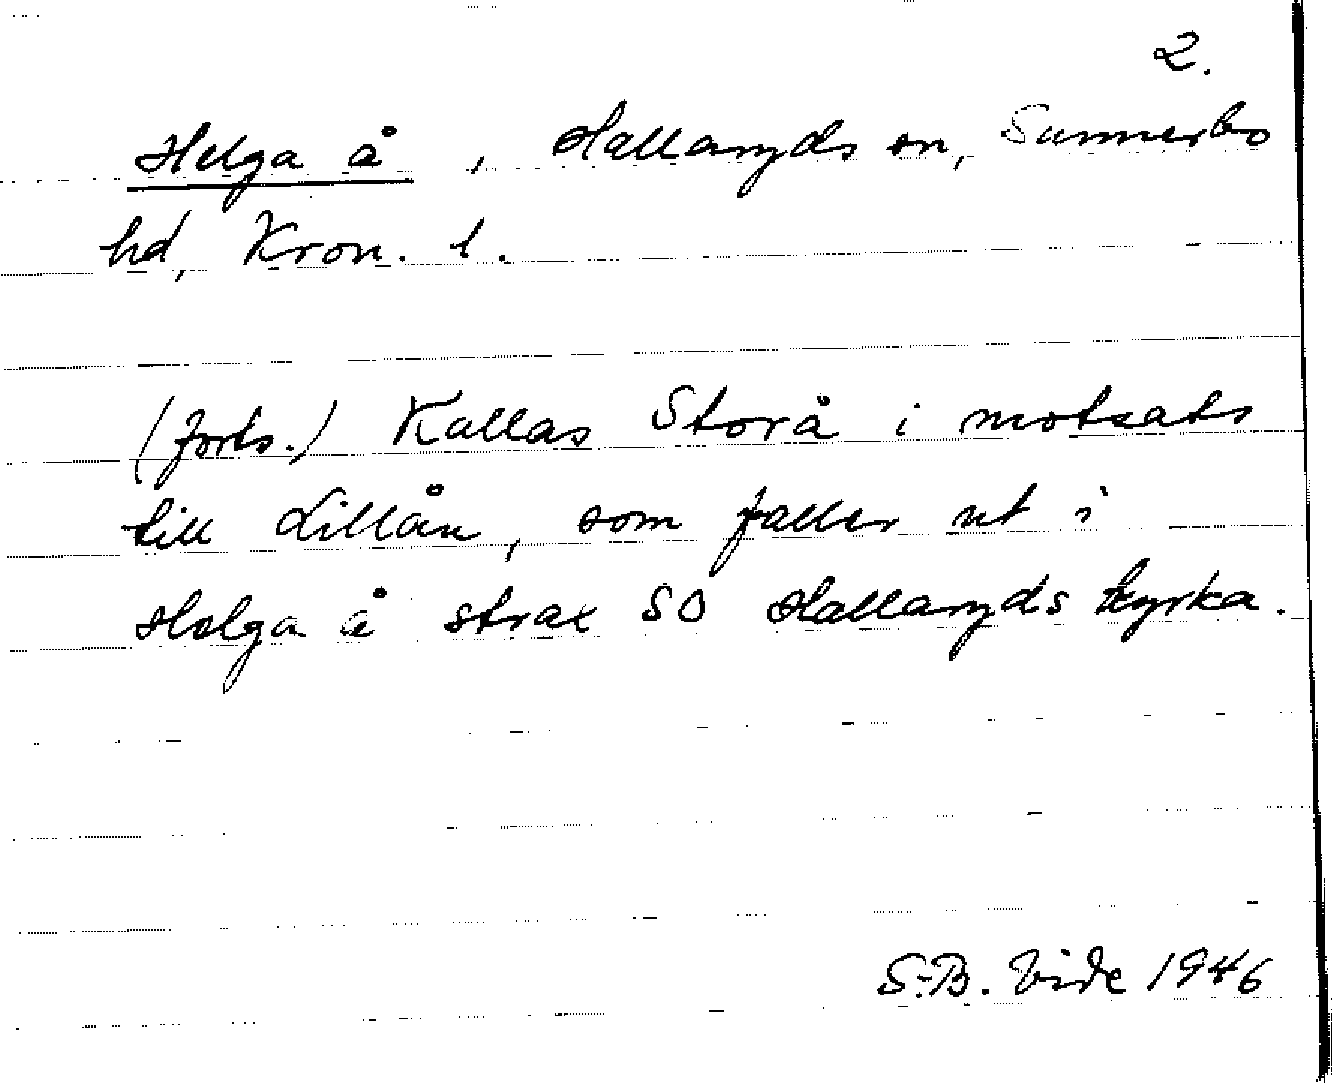 2.
Helga å, Hallaryds sn, Sunnerbo
hd, Kron. l.
(forts.) Kallas Storå i motsats
till Lillån, som faller ut i
Helga å strax SO Hallaryds kyrka.
S.-B. Vide 1946